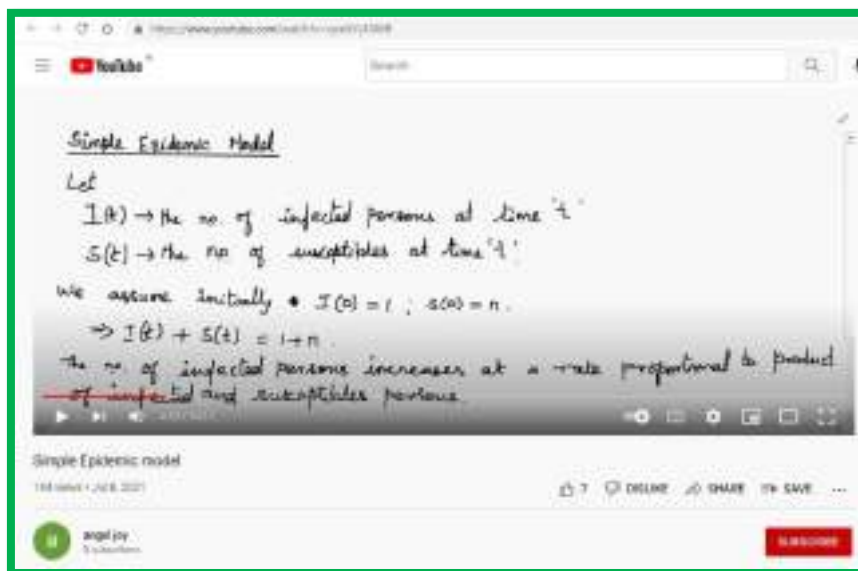 YouTube
Search
Simple Epidemic Model
Let
I(t) → the no. of infected persons at time 't'
S(t) → the no of susceptibles at time 't'
We assume initially I(0) = 1 ; S(0) = n.
⇒ I(t) + S(t) = 1+n
The no. of infected persons increases at a rate proportional to product
of infected and susceptibles persons
Simple Epidemic model
7 DISLIKE SHARE SAVE ...
angel joy
SUBSCRIBE